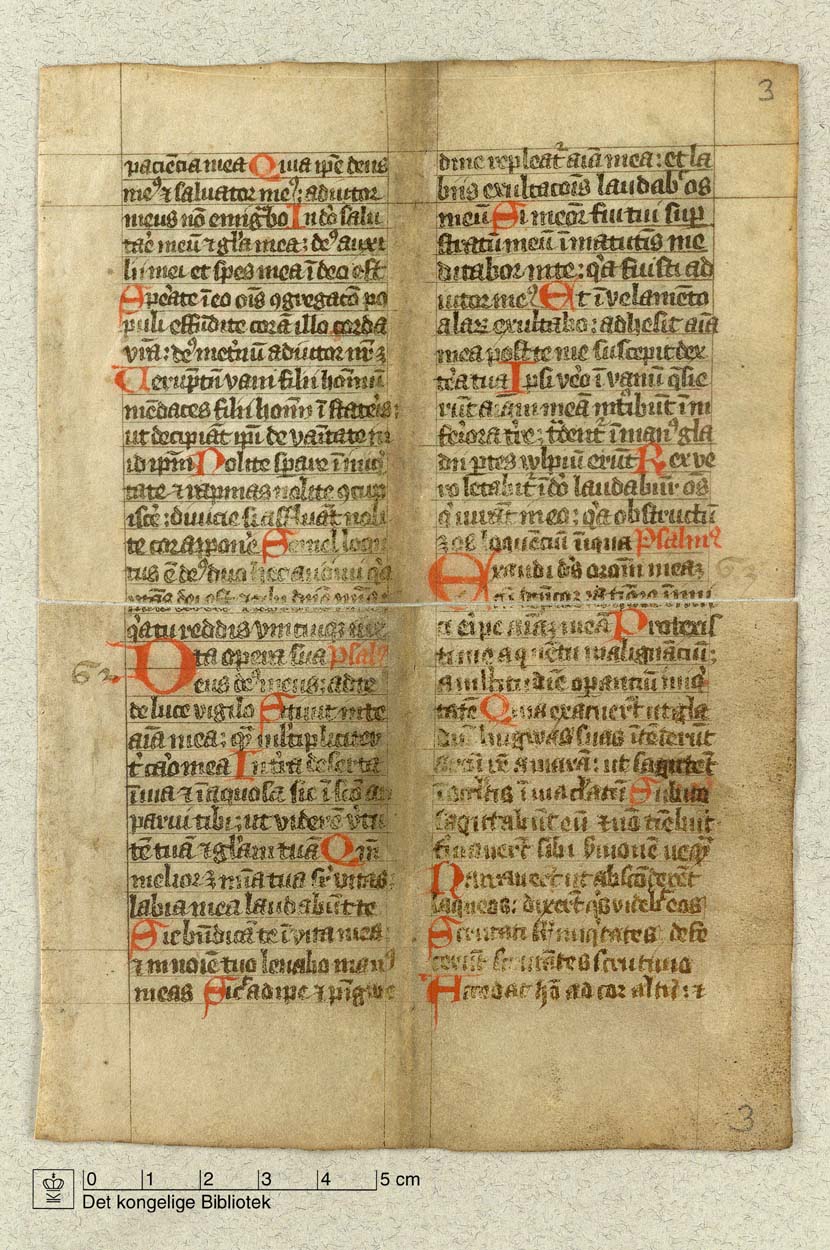 3
paciẽcia mea Quia ip̃e deus
meꝰ ⁊ saluator meꝰ: adiutor
meus nõ emigᵃbo In dõ salu
tar̃ meũ ⁊ gl̃a mea: deꝰ auxi
lii mei et spes mea ĩ deo est
Sperate ĩ eo oĩs ꝯgregatõ po
puli effũdite corã illo corda
vr̃a: deꝰ metr̃nũ adiutor nr̃
Verupt̃n vani filii hom̃nũ
mẽdaces filii hom̃ ĩ stateris:
ut decipiãt ip̃i de vanitate ĩ
id ip̃m Nolite sperare ĩ iniqͥ
tate ⁊ rapinas nolite ꝯcup
iscẽ: diuicie si affluãt noli
te cor apponẽ Semel locu
tus ẽ deꝰ duo hec audiui qᵃ
qᵃ tu reddis vnicuiqꝫ
62
ta opera sua Psalꝰ
Deus deꝰ meus: ad te
de luce vigilo Sitiuit in te
aĩa mea: qᵐ multipliciter
t ͥ caro mea In terra deserta
ĩuia ⁊ ĩaquosa sic ĩ scõ ap
parui tibi: ut viderẽ v̓tu
tẽ tuã ⁊ gl̃am tuã Qm̃
melior ẽ mĩa tua sr̃ vitas:
labia mea laudabũt te
Sic bñdicã te ĩ vita mea:
⁊ in noĩe tuo leuabo manꝰ
meas Sic̃ adipe ⁊ pĩgwe
dine repleat̃ aĩa mea: et la
biis exultacõis laudab̃ os
meũ Si meor̃ fui tui suꝑ
stratũ meũ ĩ matutĩs me
ditabor in te: qᵃ fuisti ad
iutor meꝰ Et ĩ velamẽto
alaꝝ exultabo: adhesit aĩa
mea post te me suscepit dex
tera tua Ip̃i vero ĩ vanũ q̃sie
rũt aĩam meã introibũt ĩ in
feriora tr̃e: t̃dent̃ ĩ manꝰ gla
dii ꝑtes wlpiũ erũt Rex ve
ro letabit̃ ĩ dõ laudabũr oẽs
qͥ iurãt ĩ meo: qᵃ obstructũ
ẽ os loquẽciũ ĩiqua Psalmꝰ
63
Exaudi dˢ orõm meaꝫ
a ͨ eripe aĩaꝫ meã Protexis
ti me a ꝯuẽtu malignãciũ:
a multitudĩe operantiũ iniqͥ
tatẽ Quia exacuerũt ut gla
diũ lingwas suas ĩtẽderũt
arcũ rẽ amarã: ut sagittẽt
ĩ occultis ĩmac̃latũ Subito
sagittabũt eũ ⁊ nõ tĩebũt
firmauerũt sibi s̃monẽ neqᵐ
Narrauerũt ut abscõderẽt
laqueos: dixerũt qͥs videbit eos
Scrutati sũt iniqͥtates defe
cerũt scrutãtes scrutinio
Accedat hõ ad cor altũ: ⁊
3
0 1 2 3 4 5 cm
Det kongelige Bibliotek